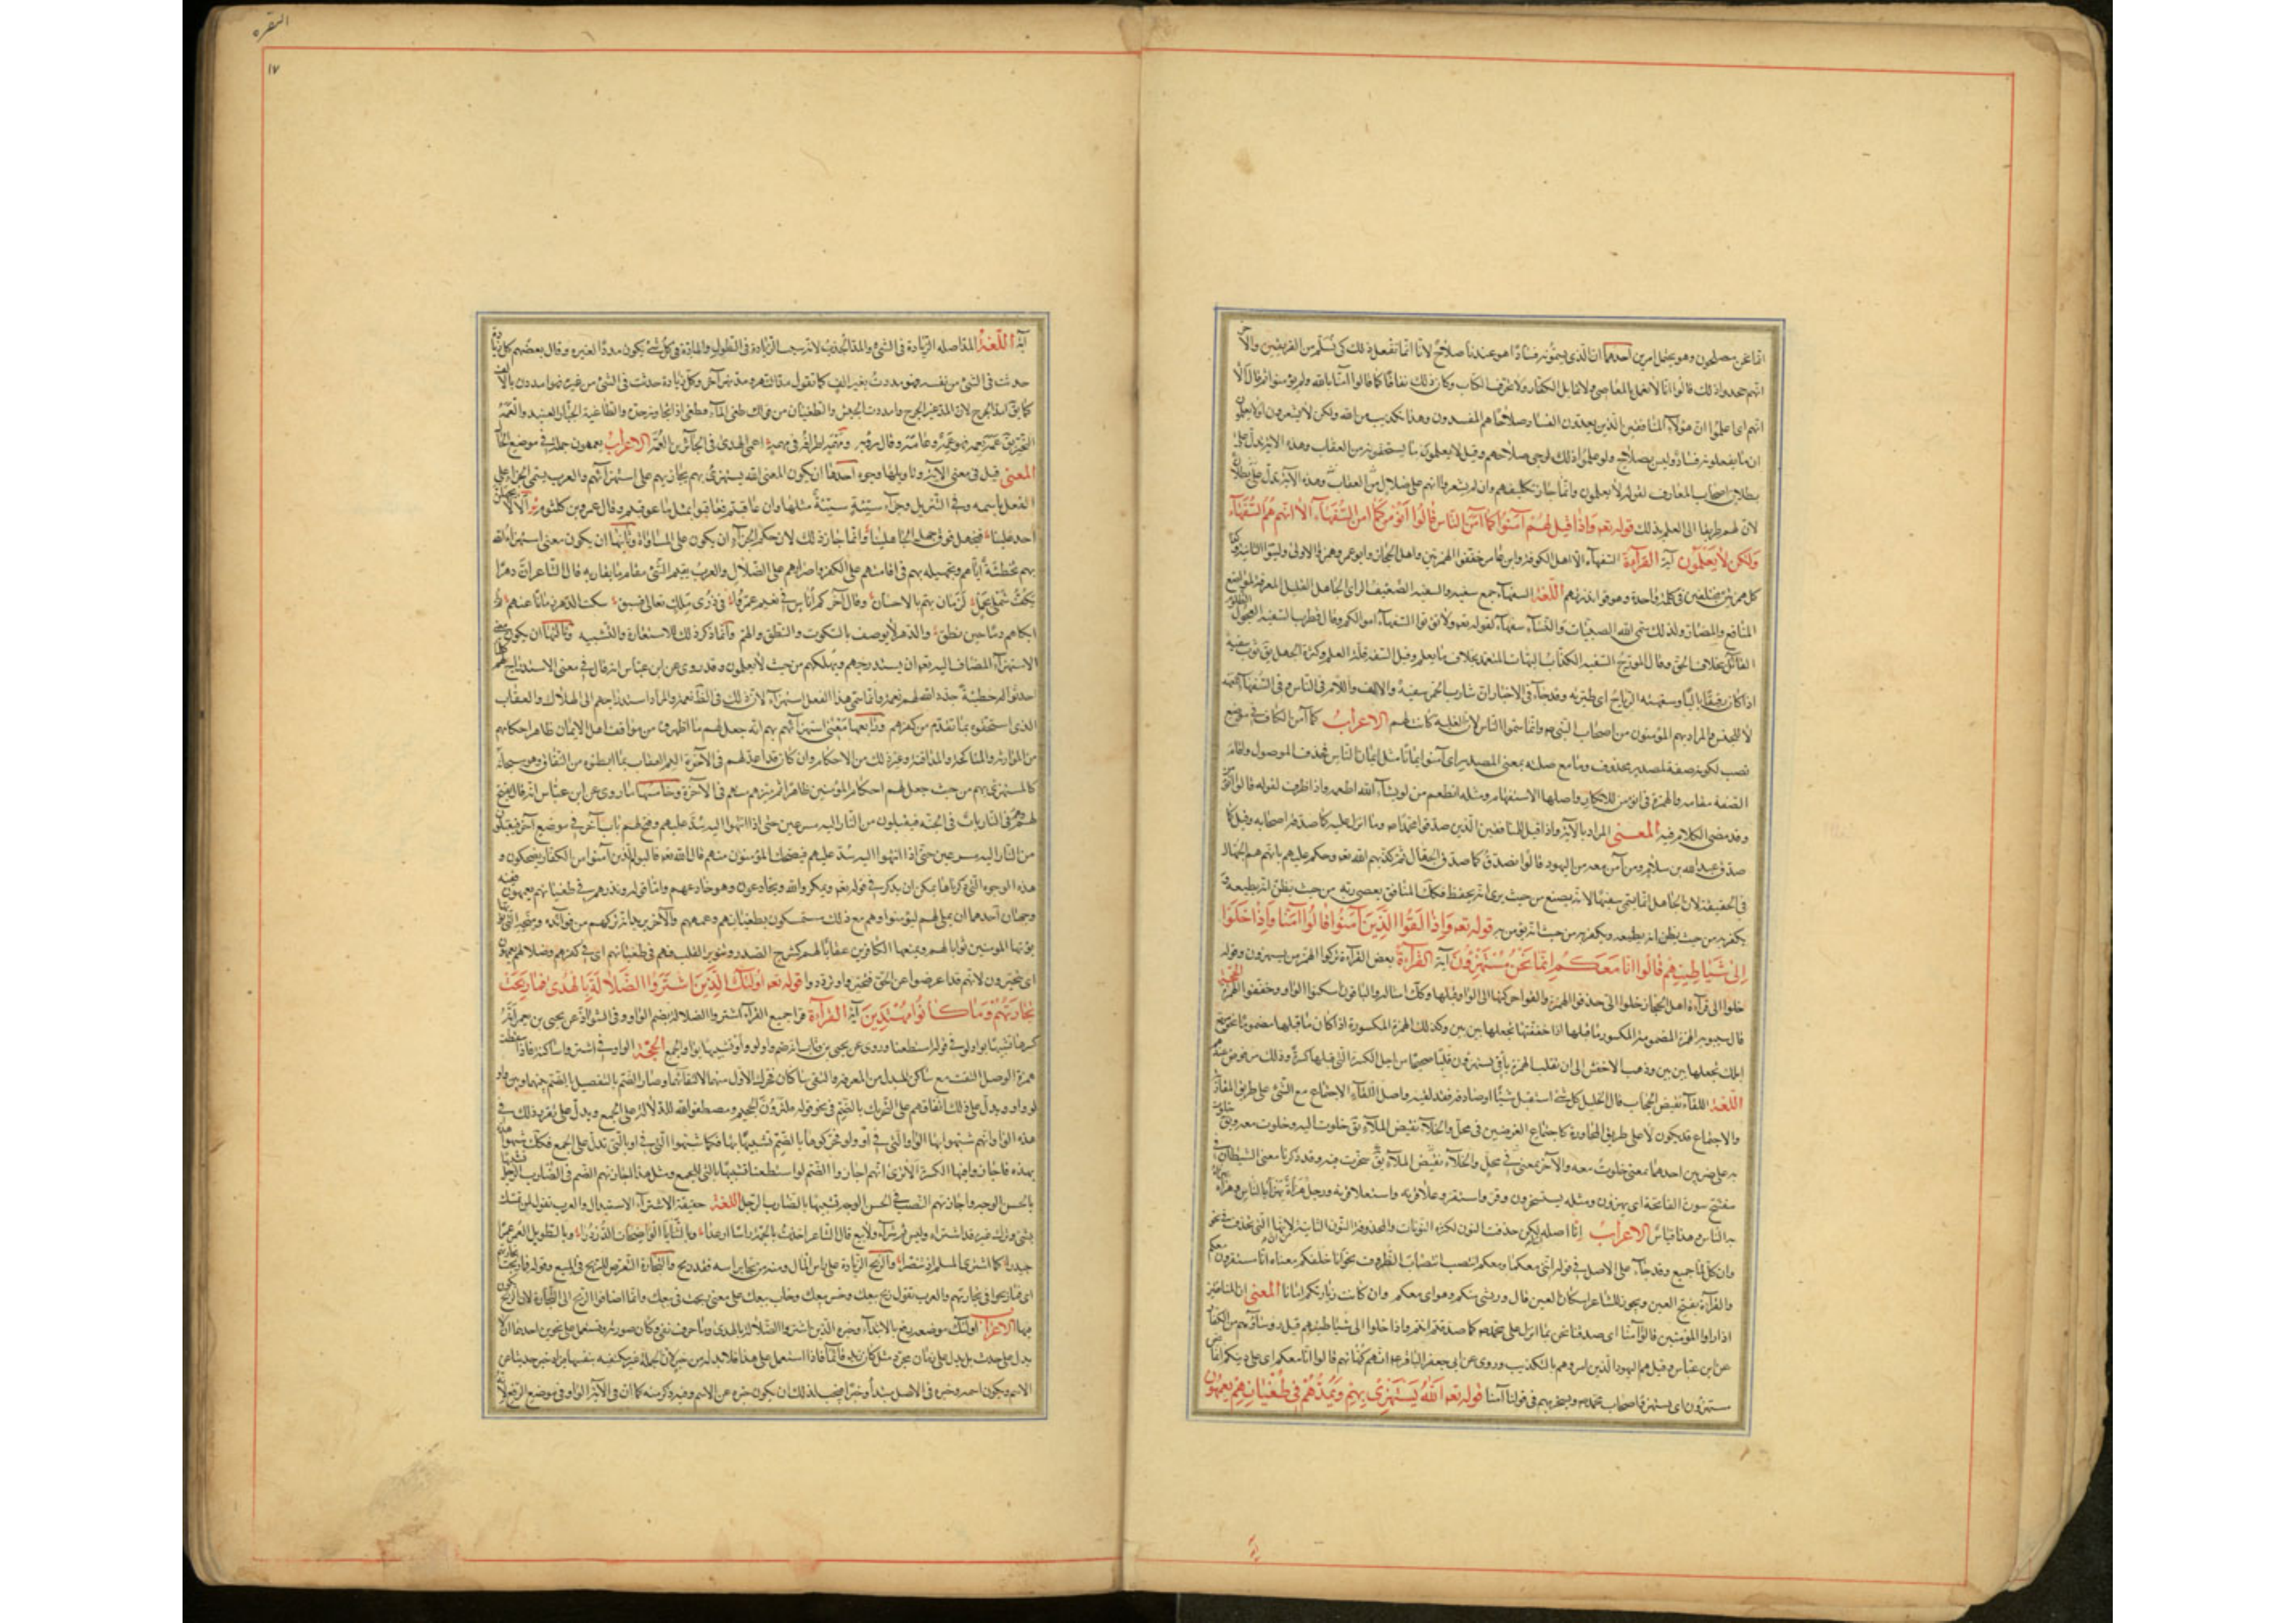 انما نحن مصلحون وهو يحتمل امرين احدهما ان الذى يسمونه فسادا هو عندنا صلاح لانا انما نفعل ذلك كى نسلم من الفريقين والآخر
انهم جحدوا ذلك فقالوا انا لا نعمل بالمعاصى ولا نمايل الكفار ولا نحرف الكتاب وكان ذلك نفاقا كما قالوا آمنا بالله ولم يؤمنوا ثم قال الا
انهم اى اعلموا ان هؤلآء المنافقين الذين يعدون الفساد صلاحا هم المفسدون وهذا تكذيب من الله ولكن لا يشعرون اى لا يعلمون
ان ما يفعلونه فساد وليس بصلاح ولو علموا ذلك لرجى صلاحهم وقيل لا يعلمون ما يستحقونه من العقاب وهذه الآية تدل على
بطلان اصحاب المعارف لقوله لا يعلمون وانما جاز تكليفهم وان لم يشعروا انهم على ضلال من العقاب وهذه الآية تدل على بطلان
لان لهم طريقا الى العلم بذلك قوله تعه واذا قيل لهم آمنوا كما آمن الناس قالوا انؤمن كما آمن السفهآء الا انهم هم السفهآء
ولكن لا يعلمون آية القرآءة السفهآء الا اهل الكوفة وابن عامر خففوا الهمزتين واهل الحجاز وابو عمرو همزوا الاولى وليّنوا الثانية وكذا
كل همزتين مختلفتين فى كلمة واحدة وهو قوا انذرتهم اللغة السفهآء جمع سفيه والسفيه الضعيف الراى الجاهل القليل المعرفة لمواضع
المنافع والمضار ولذلك سمى الله الصبيان والنسآء سفهآء لقوله تعه ولا تؤتوا السفهآء اموالكم وقال قطرب السفيه العجول الظلوم
القائل بخلاف الحق وقال المورج السفيه الكذاب البهات المتعمد بخلاف ما يعلم وقيل السفه قلة العلم وكثرة الجهل يق ثوب سفيه
اذا كان رقيقا باليا وسفهته الرياح اى طيرته وقد جآء فى الاخبار ان شارب الخمر سفيه والالف واللام فى الناس وفى السفهآء للعهد
لا للجنس والمراد بهم المؤمنون من اصحاب النبى ص وانما سموا الناس لان الغلبة كانت لهم الاعراب كما آمن الكاف فى موضع
نصب لكونه صفة لمصدر محذوف وما مع صلته بمعنى المصدر اى آمنوا ايمانا مثل ايمان الناس فحذف الموصول واقام
الصفة مقامه والهمزة فى انؤمن للانكار واصلها الاستفهام ومثله انطعم من لو يشآء الله اطعمه واذا ظرف لقوله قالوا انؤمن
وقد مضى الكلام فيه المعنى المراد بالآية واذا قيل للمنافقين الذين صدقوا محمدا ص وما انزل عليه كما صدقه اصحابه وقيل كما
صدق عبد الله بن سلام ومن آمن معه من اليهود قالوا انصدق كما صدق الجهال ثم كذبهم الله تعه وحكم عليهم بانهم هم الجهال
فى الحقيقة لان الجاهل انما يسمى سفيها لانه يضيع من حيث يرى انه يحفظ فكك المنافق يعصى ربه من حيث يظن انه يطيعه و
يكفر به من حيث يظن انه يؤمن به قوله تعه واذا لقوا الذين آمنوا قالوا آمنا واذا خلوا
الى شياطينهم قالوا انا معكم انما نحن مستهزؤن آية القرآءة بعض القرآء تركوا الهمزة من يستهزؤن وقوله
خلوا الى قرآءة اهل الحجاز خلوا الى حذفوا الهمزة والقوا حركتها الى الواو قبلها وكك امثاله والباقون اسكنوا الواو وحققوا الهمزة الحجة
قال سيبويه الهمزة المضمومة المكسور ما قبلها اذا خففتها تجعلها بين بين وكذلك الهمزة المكسورة اذا كان ما قبلها مضموما نحو مرتع
ابلك تجعلها بين بين وذهب الاخفش الى ان تقلب الهمزة ياء فى يستهزؤن قلبا صحيحا من اجل الكسرة التى قبلها
اللغة اللقآء نقيض الحجاب قال الخليل كل شىء استقبل شيئا او صادفه فقد لقيه واصل اللقآء الاجتماع مع الشئ على طريق المقاربة
والاجتماع قد يكون لا على طريق المجاورة كاجتماع العرضين فى محل والخلآء نقيض الملآء يق خلوت اليه وخلوت معه
به على ضربين احدهما بمعنى خلوت معه والآخر بمعنى سخرت منه وقد ذكرنا معنى الشيطان فى
مفتتح سورة الفاتحة اى يهزؤن ومثله يستخرون وقر واستقر وعلا قرنه واستعلا قرنه ورجل هزأة يهزأ بالناس وهزأة يهزأ
به الناس وهذا قياس الاعراب انا اصله اننا لكن حذفت النون لكثرة النونات والمحذوفة النون الثانية لانها التى تحذف فى نحو
وان كل لما جميع وقد جآء على الاصل فى قوله اننى معكما ومعكم انتصب انتصاب الظروف نحو انا خلفكم معناه انا مستقرون معكم
والقرآءة بفتح العين ويجوز للشاعر اسكان العين قال وريشى منكم وهواى معكم وان كانت زيارتكم لماما المعنى ان المنافقين
اذا راوا المؤمنين قالوا آمنا اى صدقنا نحن بما انزل على محمد ص كما صدقتم انتم واذا خلوا الى شياطينهم قيل رؤسآؤهم من الكفار
عن ابن عباس وقيل هم اليهود الذين امروهم بالتكذيب وروى عن ابى جعفر الباقر ع انهم كهانهم قالوا انا معكم اى على دينكم انما نحن
مستهزؤن اى نستهزئ باصحاب محمد ص ونسخر بهم فى قولنا آمنا قوله تعه الله يستهزئ بهم ويمدهم فى طغيانهم يعمهون
البقره
١٧
آية اللغة المد اصله الزيادة فى الشئ والمد الجذب لانه سبب الزيادة فى الطول والمادة فى كل شئ يكون مددا لغيره وقال بعضهم كل زيادة
حدثت فى الشئ من نفسه فهو مددت بغير الف كما تقول مد النهر ومده نهر آخر وكل زيادة حدثت فى الشئ من غيره فهو امددت بالالف
كما يق امد الجرح لان المدة غير الجرح وامددت الجيش والطغيان من قولك طغى المآء يطغى اذا تجاوز حده والطاغية الجبار العنيد والعمه
التحير يق عمه يعمه فهو عمه وعامه وقال رؤبة ومهمه اطرافه فى مهمه اعمى الهدى فى الحائرين العمه الاعراب يعمهون جملة فى موضع الحال
المعنى قيل فى معنى الآية وتاويلها وجوه احدها ان يكون المعنى الله يستهزئ بهم يجازيهم على استهزآئهم والعرب تسمى الجزآء على
الفعل باسمه وفى التنزيل وجزآء سيئة سيئة مثلها وان عاقبتم فعاقبوا بمثل ما عوقبتم وقال عمرو بن كلثوم الا لا يجهلن
احد علينا فنجهل فوق جهل الجاهلينا وانما جاز ذلك لان حكم الجزآء ان يكون على المساواة وثانيها ان يكون معنى استهزآء الله
بهم تخطئة اياهم وتجهيله لهم فى اقامتهم على الكفر واصرارهم على الضلال والعرب يقيم الشئ مقام ما يقاربه قال الشاعر ان دهرا
يلف شملى بجمل لزمان يهم بالاحسان وقال آخر كم اناس فى نعيم عمروا فى ذرى ملك تعالى فبسق سكت الدهر زمانا عنهم ثم
ابكاهم دما حين نطق والدهر لا يوصف بالسكوت والنطق والهم وانما ذكر ذلك للاستعارة والتشبيه وثالثها ان يكون معنى
الاستهزآء المضاف اليه تعه ان يستدرجهم ويهلكهم من حيث لا يعلمون وقد روى عن ابن عباس انه قال فى معنى الاستدراج كلما
احدثوا خطيئة جدد الله لهم نعمة وانما سمى هذا الفعل استهزآء لان ذلك فى الظاهر نعمة والمراد استدراجهم الى الهلاك والعقاب
الذى استحقوه بما تقدم من كفرهم ورابعها ان معنى استهزآئهم بهم انه جعل لهم بما اظهروه من موافقة اهل الايمان ظاهر احكامهم
من الموارثة والمناكحة والمدافنة وغير ذلك من الاحكام وان كان قد اعد لهم فى الآخرة اليم العقاب بما ابطنوه من النفاق وهو سبحانه
كالمستهزئ بهم من حيث جعل لهم احكام المؤمنين ظاهرا ثم ميزهم منهم فى الآخرة وخامسها ما روى عن ابن عباس انه قال يفتح
لهم وهم فى النار باب فى الجنة فيقبلون من النار اليه مسرعين حتى اذا انتهوا اليه سد عليهم وفتح لهم باب آخر فى موضع آخر فيقبلون
من النار اليه مسرعين حتى اذا انتهوا اليه سد عليهم فيضحك المؤمنون منهم قال الله تعه فاليوم الذين آمنوا من الكفار يضحكون و
هذه الوجوه التى ذكرناها يمكن ان يذكر فى قوله تعه ويمكر الله ويخادعون وهو خادعهم واما قوله ويذرهم فى طغيانهم يعمهون ففيه
وجهان احدهما ان يملى لهم ليؤمنوا وهم مع ذلك مستمسكون بطغيانهم وعمههم والآخر يريد انه تركهم من فوائده ومنحه التى
يؤتيها المؤمنين ثوابا لهم ويمنعها الكافرين عقابا لهم كشرح الصدر وتنوير القلب فهم فى طغيانهم اى فى كفرهم وضلالهم يعمهون
اى يتحيرون لانهم قد اعرضوا عن الحق فتحيروا وترددوا قوله تعه اولئك الذين اشتروا الضلالة بالهدى فما ربحت
تجارتهم وما كانوا مهتدين آية القرآءة قرا جميع القرآء اشتروا الضلالة بضم الواو وفى الشواذ عن يحيى بن يعمر انه
كسرها تشبيها بواو لو فى قوله لو استطعنا وروى عن يحيى بن وثاب انه ضم واو لو واو تشبيها بواو الجمع الحجة الواو فى اشتروا ساكنة فاذا سقطت
همزة الوصل التقت مع ساكن المبدل من المعرفة والتقى ساكنان فحرك الاول منهما لالتقائهما وصار الضم
لو واو ويدل على ذلك اتفاقهم على التحريك بالضم فى نحو قوله لترون الجحيم ومصطفو الله للدلالة على الجمع ويدل على تقرير ذلك فى
هذه الواو انهم شبهوا بها الواو التى فى او ولو فحركوها بالضم تشبيها بها فكما شبهوا التى فى او بالتى تدل على الجمع فكك شبهوا
بهذه فاجازوا فيها الكسر الا ترى انهم اجازوا الضم لو استطعنا تشبيها بالتى للجمع ومثل هذا اجازتهم الضم فى الضارب الرجل
بالحسن الوجه واجازتهم النصب فى الحسن الوجه تشبيها بالضارب الرجل اللغة حقيقة الاشترآء الاستبدال والعرب تقول لمن تمسك
بشئ وترك غيره قد اشتراه وليس ثم شرآء ولا بيع قال الشاعر اخذت بالجمة راسا ازعرا وبالثنايا الواضحات الدردرا وبالطويل العمر عمرا
جيدرا كما اشترى المسلم اذ تنصرا والربح الزيادة على راس المال ومنه من نجا براسه فقد ربح والتجارة التعرض للربح فى البيع وقوله فما ربحت تجارتهم
اى فما ربحوا فى تجارتهم والعرب تقول ربح بيعك وخسر بيعك وخاب بيعك على معنى ربحت فى بيعك وانما اضافوا الربح الى التجارة لان الربح يكون
فيها الاعراب اولئك موضعه رفع بالابتدآء وخبره الذين اشتروا الضلالة بالهدى وما حرف نفى وكان صورته فعل على نحوين احدهما ان لا
يدل على حدث بل يدل على زمان مجرد مثل كان زيد قائما فاذا استعمل على هذا فلا بد له من خبر لان الجملة غير مكتفية بنفسها فيزاد خبر حديثا عن
الاسم ويكون اسمه وخبره فى الاصل مبتدأ وخبرا فيجب لذلك ان يكون خبره هو الاسم او فيه ذكر منه كما ان فى الآية الواو فى موضع الرفع لانه